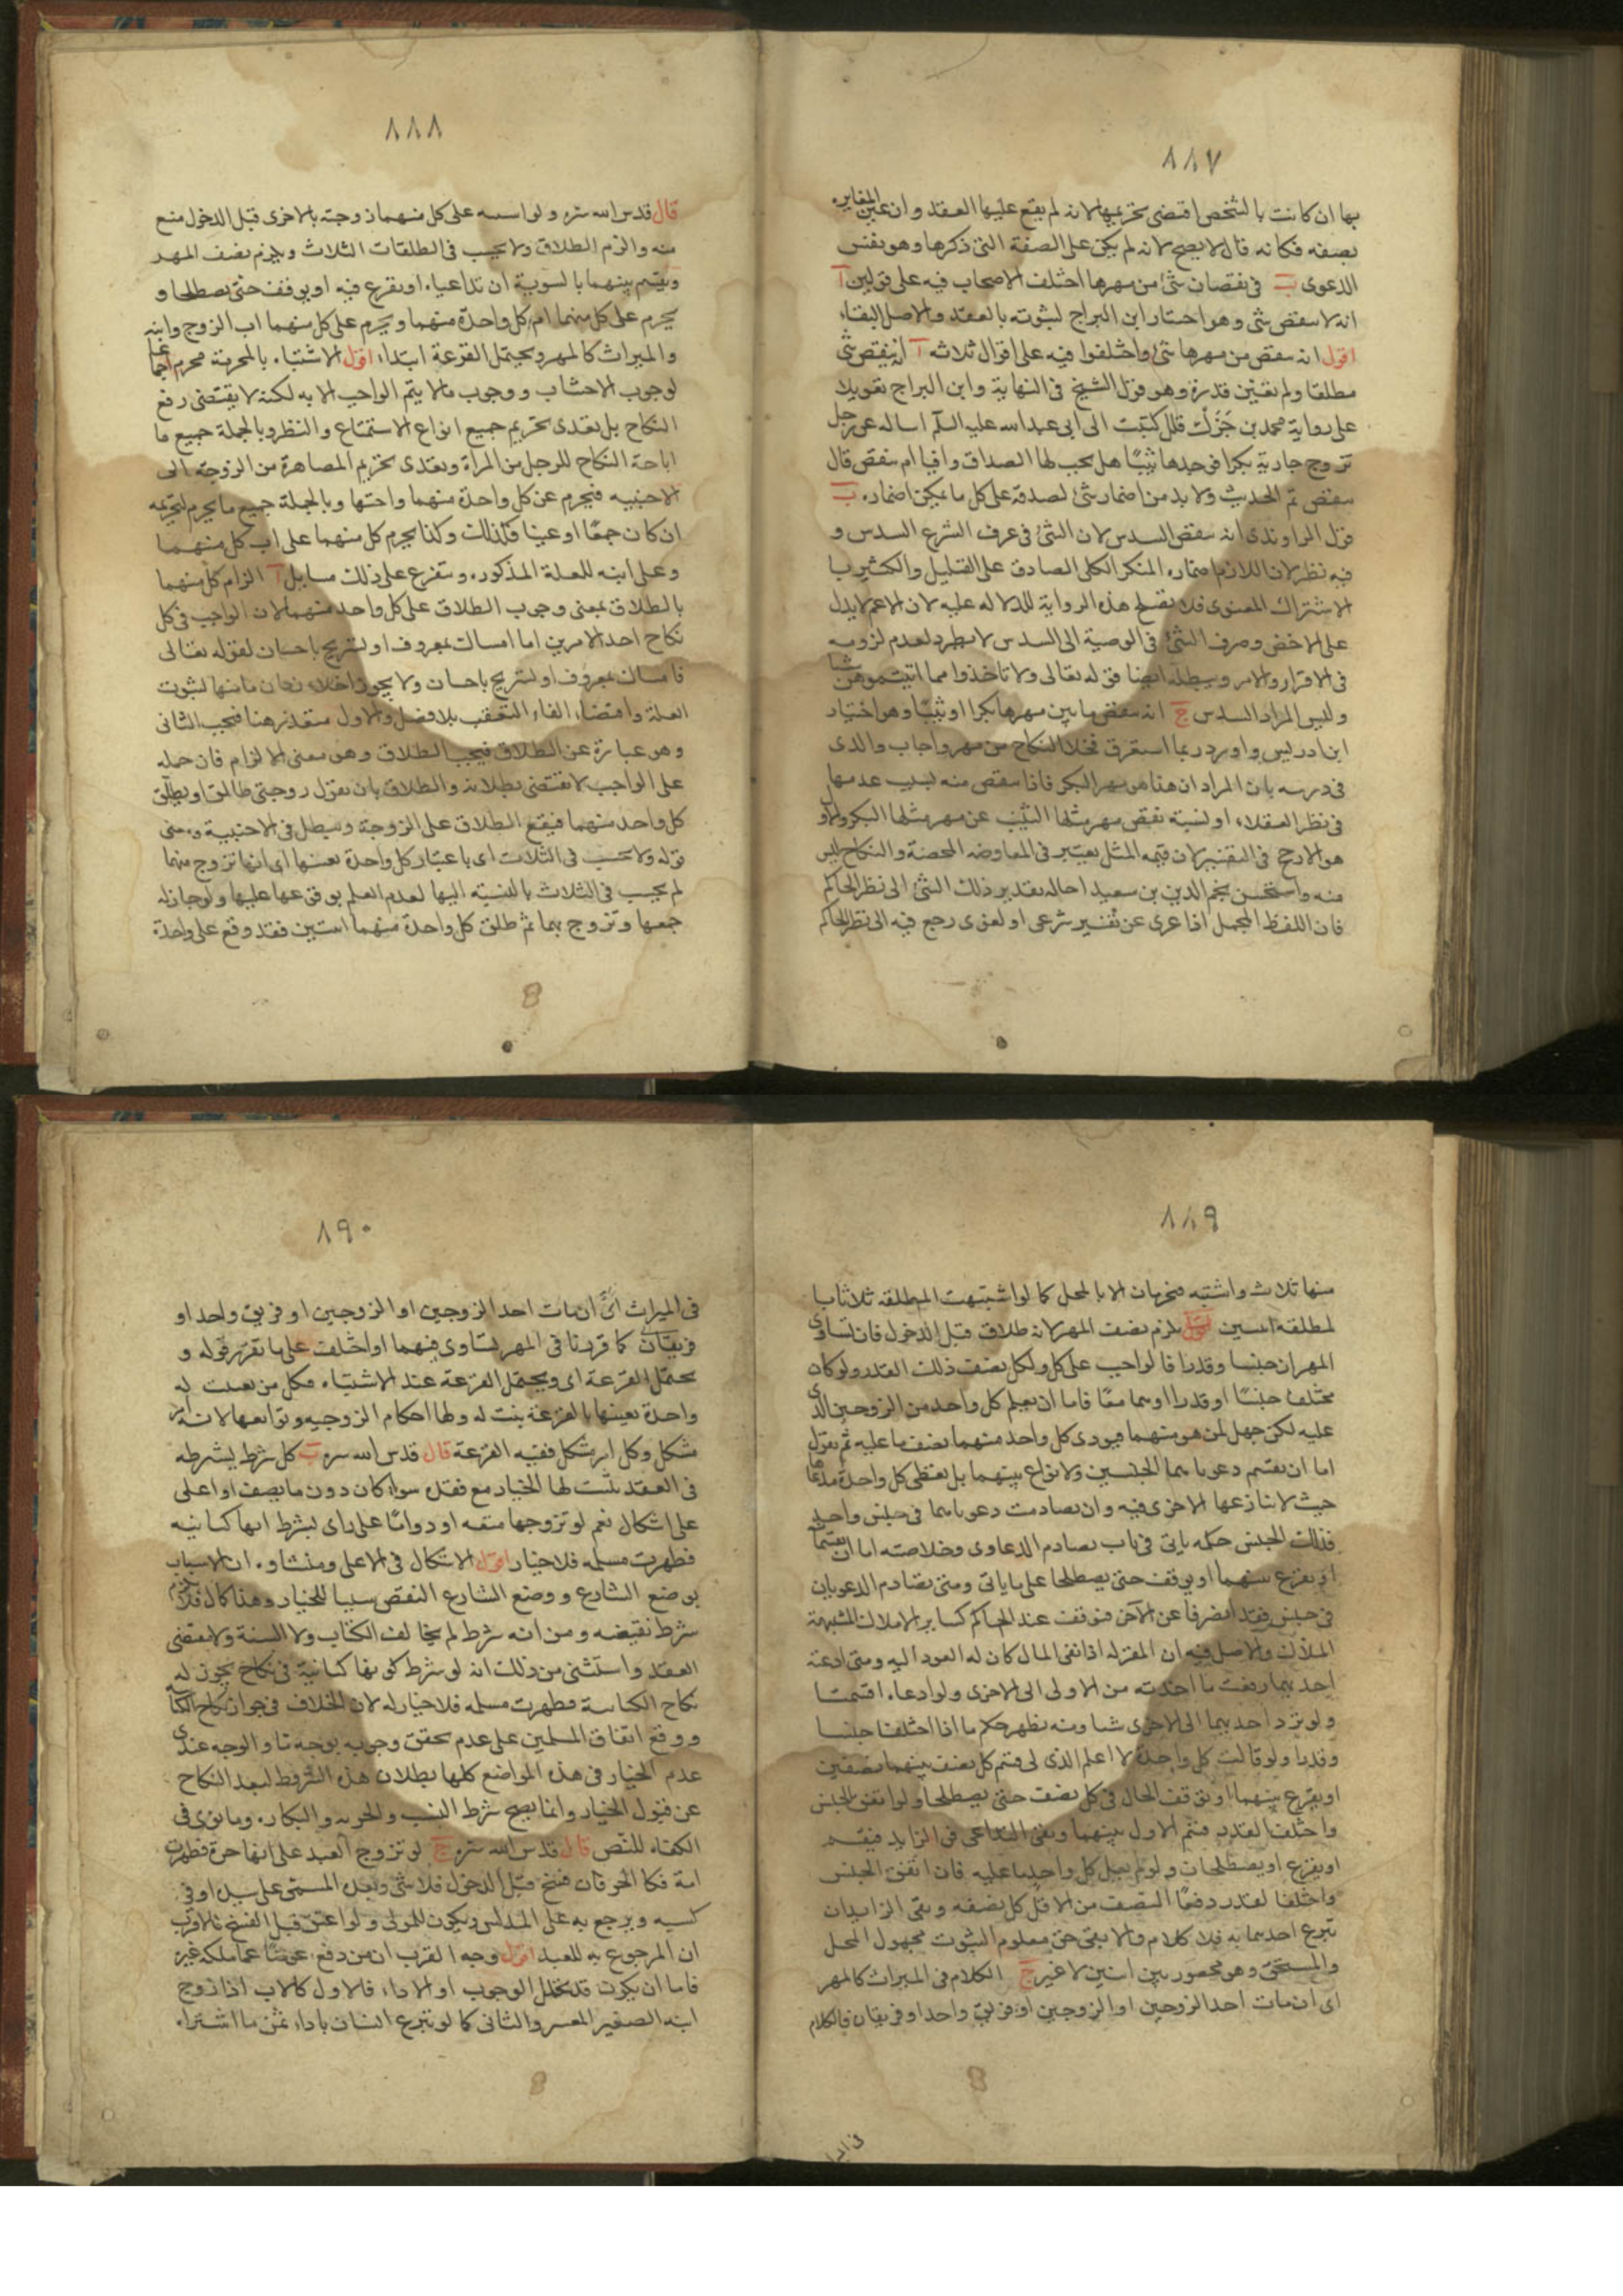 ٨٨٧
بها ان كانت بالشخص اقتضى تحريمها لانه لم يقع عليها العقد وان عين المغايره
بصفه فكانه قال لا يصح لانه لم يكن على الصفة التى ذكرها وهو نفس
الدعوى ب فى نقصان شئ من مهرها اختلف الاصحاب فيه على قولين آ
انه لا ينقص شى وهو اختيار ابن البراج لثبوته بالعقد والاصل البقاء
اقول انه ينقص من مهرها شئ واختلفوا فيه على اقوال ثلاثه آ ان ينقص شى
مطلقا ولم تعين قدره وهو قول الشيخ فى النهاية وابن البراج تعويلا
على رواية محمد بن جَزَّك قال كتبت الى ابى عبد الله عليه السلم اساله عن رجل
تزوج جارية بكرا فوجدها ثيبًا هل يجب لها الصداق وافيا ام ينقص قال
ينقص تم الحديث ولا بد من اضمار شئ لصدقه على كل ما يمكن اضماره ب
قول الراوندى انه ينقص السدس لان الشئ فى عرف الشرع السدس و
فيه نظر لان اللازم اضماره المنكر الكلى الصادق على القليل والكثير با
الاشتراك المعنوى فلا يصلح هذه الرواية للدلاله عليه لان الاعم لا يدل
على الاخص وصرف الشئ فى الوصية الى السدس لا يطرد لعدم لزومه
فى الاقرار والامر ويبطله ايضا قوله تعالى ولا تاخذوا مما اتيتموهن شيا
وليس المراد السدس ج انه ينقص ما بين مهرها بكرا او ثيبًا وهو اختيار
ابن ادريس واورد ربما استغرق فخلا النكاح من مهر واجاب والدى
فى درسه بان المراد ان هنا هو مهر البكر فاذا ينقص منه بسبب عدمها
فى نظر العقلاء او نسبة نقص مهر مثلها الثيب عن مهر مثلها البكر والاو
هو الارجح فى التفسير لان قيمه المثل يعتبر فى المعاوضه المحضة والنكاح ليس
منه واستحسن نجم الدين بن سعيد احاله تقدير ذلك الشئ الى نظر الحاكم
فان اللفظ المجمل اذا عرى عن تفسير شرعى او لغوى رجع فيه الى نظر الحاكم
٨٨٨
قال قدس الله سره ولو اشتبه على كل منهما زوجته بالاخرى قبل الدخول منع
منه والزم الطلاق ولا يحسب فى الطلقات الثلاث ويلزم نصف المهر
ويقسم بينهما بالسوية ان تداعياه او يقرع فيه او يوقف حتى يصطلحا و
يحرم على كل منهما ام كل واحدة منهما ويحرم على كل منهما اب الزوج وابنه
والميراث كالمهر ويحتمل القرعة ابتداء اقول الاشتباه بالمحرمة محرم اجماعا
لوجوب الاجتناب ووجوب مالا يتم الواجب الا به لكنه لا يقتضى رفع
النكاح بل يقتضى تحريم جميع انواع الاستمتاع والنظر وبالجملة جميع ما
اباحة النكاح للرجل من المراة ويعتدى تحريم المصاهرة من الزوجة الى
الاجنبيه فيحرم عن كل واحدة منهما واختها وبالجملة جميع ما يحرم لتحريمه
ان كان جمعًا او عينا فكذلك وكذا يحرم كل منهما على اب كل منهما
وعلى ابنه للعلة المذكوره ويتفرع على ذلك مسايل آ الزام كل منهما
بالطلاق بمعنى وجوب الطلاق على كل واحد منهما لان الواجب فى كل
نكاح احد الامرين اما امساك بمعروف او تسريح باحسان لقوله تعالى
فامساك بمعروف او تسريح باحسان ولا يجوز اخلاء زمان ما منها لثبوت
العلة واقتضاء الفاء التعقيب بلا فصل والاول متعذر هنا فيجب الثانى
وهو عبارة عن الطلاق فيجب الطلاق وهو معنى الالزام فان حمله
على الواجب لا يقتضى بطلانه والطلاق بان يقول زوجتى طالق او يطلق
كل واحد منهما فيقع الطلاق على الزوجة ويبطل فى الاجنبية ومعنى
قوله ولا يحسب فى الثلاث اى باعتبار كل واحدة بعينها اى انها تزوج منهما
لم يحسب فى الثلاث بالنسبة اليها لعدم العلم بوقوعها عليها ولو جاز له
جمعها وتزوج بهما ثم طلق كل واحدة منهما اثنتين فقد وقع على واحدة
٨٨٩
منها ثلاث واشتبه فيحرمان الا بالمحلل كما لو اشتبهت المطلقه ثلاثا با
لمطلقة اثنتين يلزم نصف المهر لانه طلاق قبل الدخول فان تساوى
المهران جنسا وقدرا فالواجب على كل ولكل نصف ذلك القدر ولو كان
مختلف جنسًا او قدرا او هما معًا فاما ان يعلم كل واحد من الزوجين الذى
عليه لكن جهل لمن هو منهما فيودى كل واحد منهما نصف ما عليه ثم يقول
اما ان تقسم دعوياهما الجنسين ولا نزاع بينهما بل تعطى كل واحدة مدعاها
حيث لا تنازعها الاخرى فيه وان تصادمت دعوياهما فى جنس واحد
فذلك الجنس حكمه ياتى فى باب تصادم الدعاوى وخلاصته اما ان يقتسما
او يقرع بينهما او يوقف حتى يصطلحا على ما ياتى ومتى تصادم الدعويان
فى جنس فقد انصرفا عن الاخر فيوقف عند الحاكم كساير الاملاك المشتبهة
الملاك والاصل فيه ان المقر له اذا نفى المال كان له العود اليه ومتى ادعته
احديهما رفعت ما اخذته من الاولى الى الاخرى ولو ادعياه اقتسمتا
ولو ترد احديهما الى الاخرى شيا ومنه يظهر حكم ما اذا اختلفا جنسا
وقدرا ولو قالت كل واحدة لا اعلم الذى لى قسم كل نصف بينهما نصفين
او يقرع بينهما او توقف الحال فى كل نصف حتى يصطلحا ولو اتفق الجنس
واختلف القدر قسم الاول بينهما وبقى التداعى فى الزايد فيقسم
او يقرع او يصطلحان ولو لم يعلم كل واحد ما عليه فان اتفق الجنس
واختلفا لقدر دفعًا النصف من الاقل كل نصفه وبقى الزايدان
تبرع احدهما به فلا كلام والا بقى حق معلوم الثبوت مجهول المحل
والمستحق وهو محصور بين اثنين لا غير ج الكلام فى الميراث كالمهر
اى ان مات احد الزوجين او الزوجين او فريق واحد او فريقان فالكلام
٨٩٠
فى الميراث اى ان مات احد الزوجين او الزوجين او فريق واحد او
فريقان كما قررنا فى المهر يتساوى فيهما او اختلف على ما تقرر قوله و
يحتمل القرعة اى ويحتمل القرعة عند الاشتباه فكل من تعينت له
واحدة بعينها بالقرعة بنت له ولها احكام الزوجيه وتوابعها لانه امر
مشكل وكل امر مشكل ففيه القرعة قال قدس الله سره ب كل شرط يشرطه
فى العقد يثبت لها الخيار مع فقده سواء كان دون ما يصف او اعلى
على اشكال نعم لو تزوجها متعه او دوامًا على راى بشرط انها كتابيه
فظهرت مسلمه فلا خيار اقول الاشكال فى الاعلى ومنشاوه ان الاسباب
بوضع الشارع ووضع الشارع النقص سببا للخيار وهنا كمال فلا
شرط نقيضه ومن انه شرط لم يخالف الكتاب ولا السنة ولا مقتضى
العقد واستثنى من ذلك انه لو شرط كونها كتابية فى نكاح يجوز له
نكاح الكتابية فظهرت مسلمه فلا خيار له لان الخلاف فى جواز نكاح الكتابية
ووقع اتفاق المسلمين على عدم تحقق وجوبه بوجه ما والوجه عندى
عدم الخيار فى هذه المواضع كلها بطلان هذه الشروط لبعد النكاح
عن قبول الخيار وانما يصح شرط النسب والحريه والبكاره وما نوى فى
الكفاء للنص قال قدس الله سره ج لو تزوج العبد على انها حرة فظهرت
امة فكالحر فان فسخ قبل الدخول فلا شئ وبعده المسمى على سيده او فى
كسبه ويرجع به على المدلس ويكون للمولى ولو اعتق قبل الفسخ فالاقرب
ان المرجوع به للعبد اقول وجه القرب ان من دفع عوضًا عما ملكه غيره
فاما ان يكون قد تخلل الوجوب او الاداء فالاول كالاب اذا زوج
ابنه الصغير المعسر والثانى كما لو تبرع انسان باداء ثمن ما اشتراه